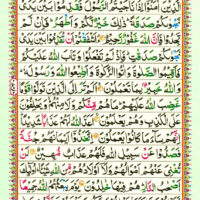 الَّذِيْنَ اٰمَنُوْٓا اِذَا نَاجَيْتُمُ الرَّسُوْلَ فَقَدِّمُوْا بَيْنَ يَدَيْ
نَجْوٰىكُمْ صَدَقَةً ؕ ذٰلِكَ خَيْرٌ لَّكُمْ وَاَطْهَرُ ؕ فَاِنْ لَّمْ
تَجِدُوْا فَاِنَّ اللّٰهَ غَفُوْرٌ رَّحِيْمٌ ءَاَشْفَقْتُمْ اَنْ تُقَدِّمُوْا بَيْنَ يَدَيْ
نَجْوٰىكُمْ صَدَقٰتٍ ؕ فَاِذْ لَمْ تَفْعَلُوْا وَتَابَ اللّٰهُ عَلَيْكُمْ
فَاَقِيْمُوا الصَّلٰوةَ وَاٰتُوا الزَّكٰوةَ وَاَطِيْعُوا اللّٰهَ وَرَسُوْلَهٗ ؕ
وَاللّٰهُ خَبِيْرٌۢ بِمَا تَعْمَلُوْنَ اَلَمْ تَرَ اِلَى الَّذِيْنَ تَوَلَّوْا قَوْمًا
غَضِبَ اللّٰهُ عَلَيْهِمْ ؕ مَا هُمْ مِّنْكُمْ وَلَا مِنْهُمْ ۙ وَيَحْلِفُوْنَ
عَلَى الْكَذِبِ وَهُمْ يَعْلَمُوْنَ اَعَدَّ اللّٰهُ لَهُمْ عَذَابًا شَدِيْدًا ؕ
اِنَّهُمْ سَآءَ مَا كَانُوْا يَعْمَلُوْنَ اِتَّخَذُوْٓا اَيْمَانَهُمْ جُنَّةً
فَصَدُّوْا عَنْ سَبِيْلِ اللّٰهِ فَلَهُمْ عَذَابٌ مُّهِيْنٌ لَنْ
تُغْنِيَ عَنْهُمْ اَمْوَالُهُمْ وَلَآ اَوْلَادُهُمْ مِّنَ اللّٰهِ شَيْـًٔا ؕ اُولٰٓئِكَ
اَصْحٰبُ النَّارِ ؕ هُمْ فِيْهَا خٰلِدُوْنَ يَوْمَ يَبْعَثُهُمُ اللّٰهُ جَمِيْعًا